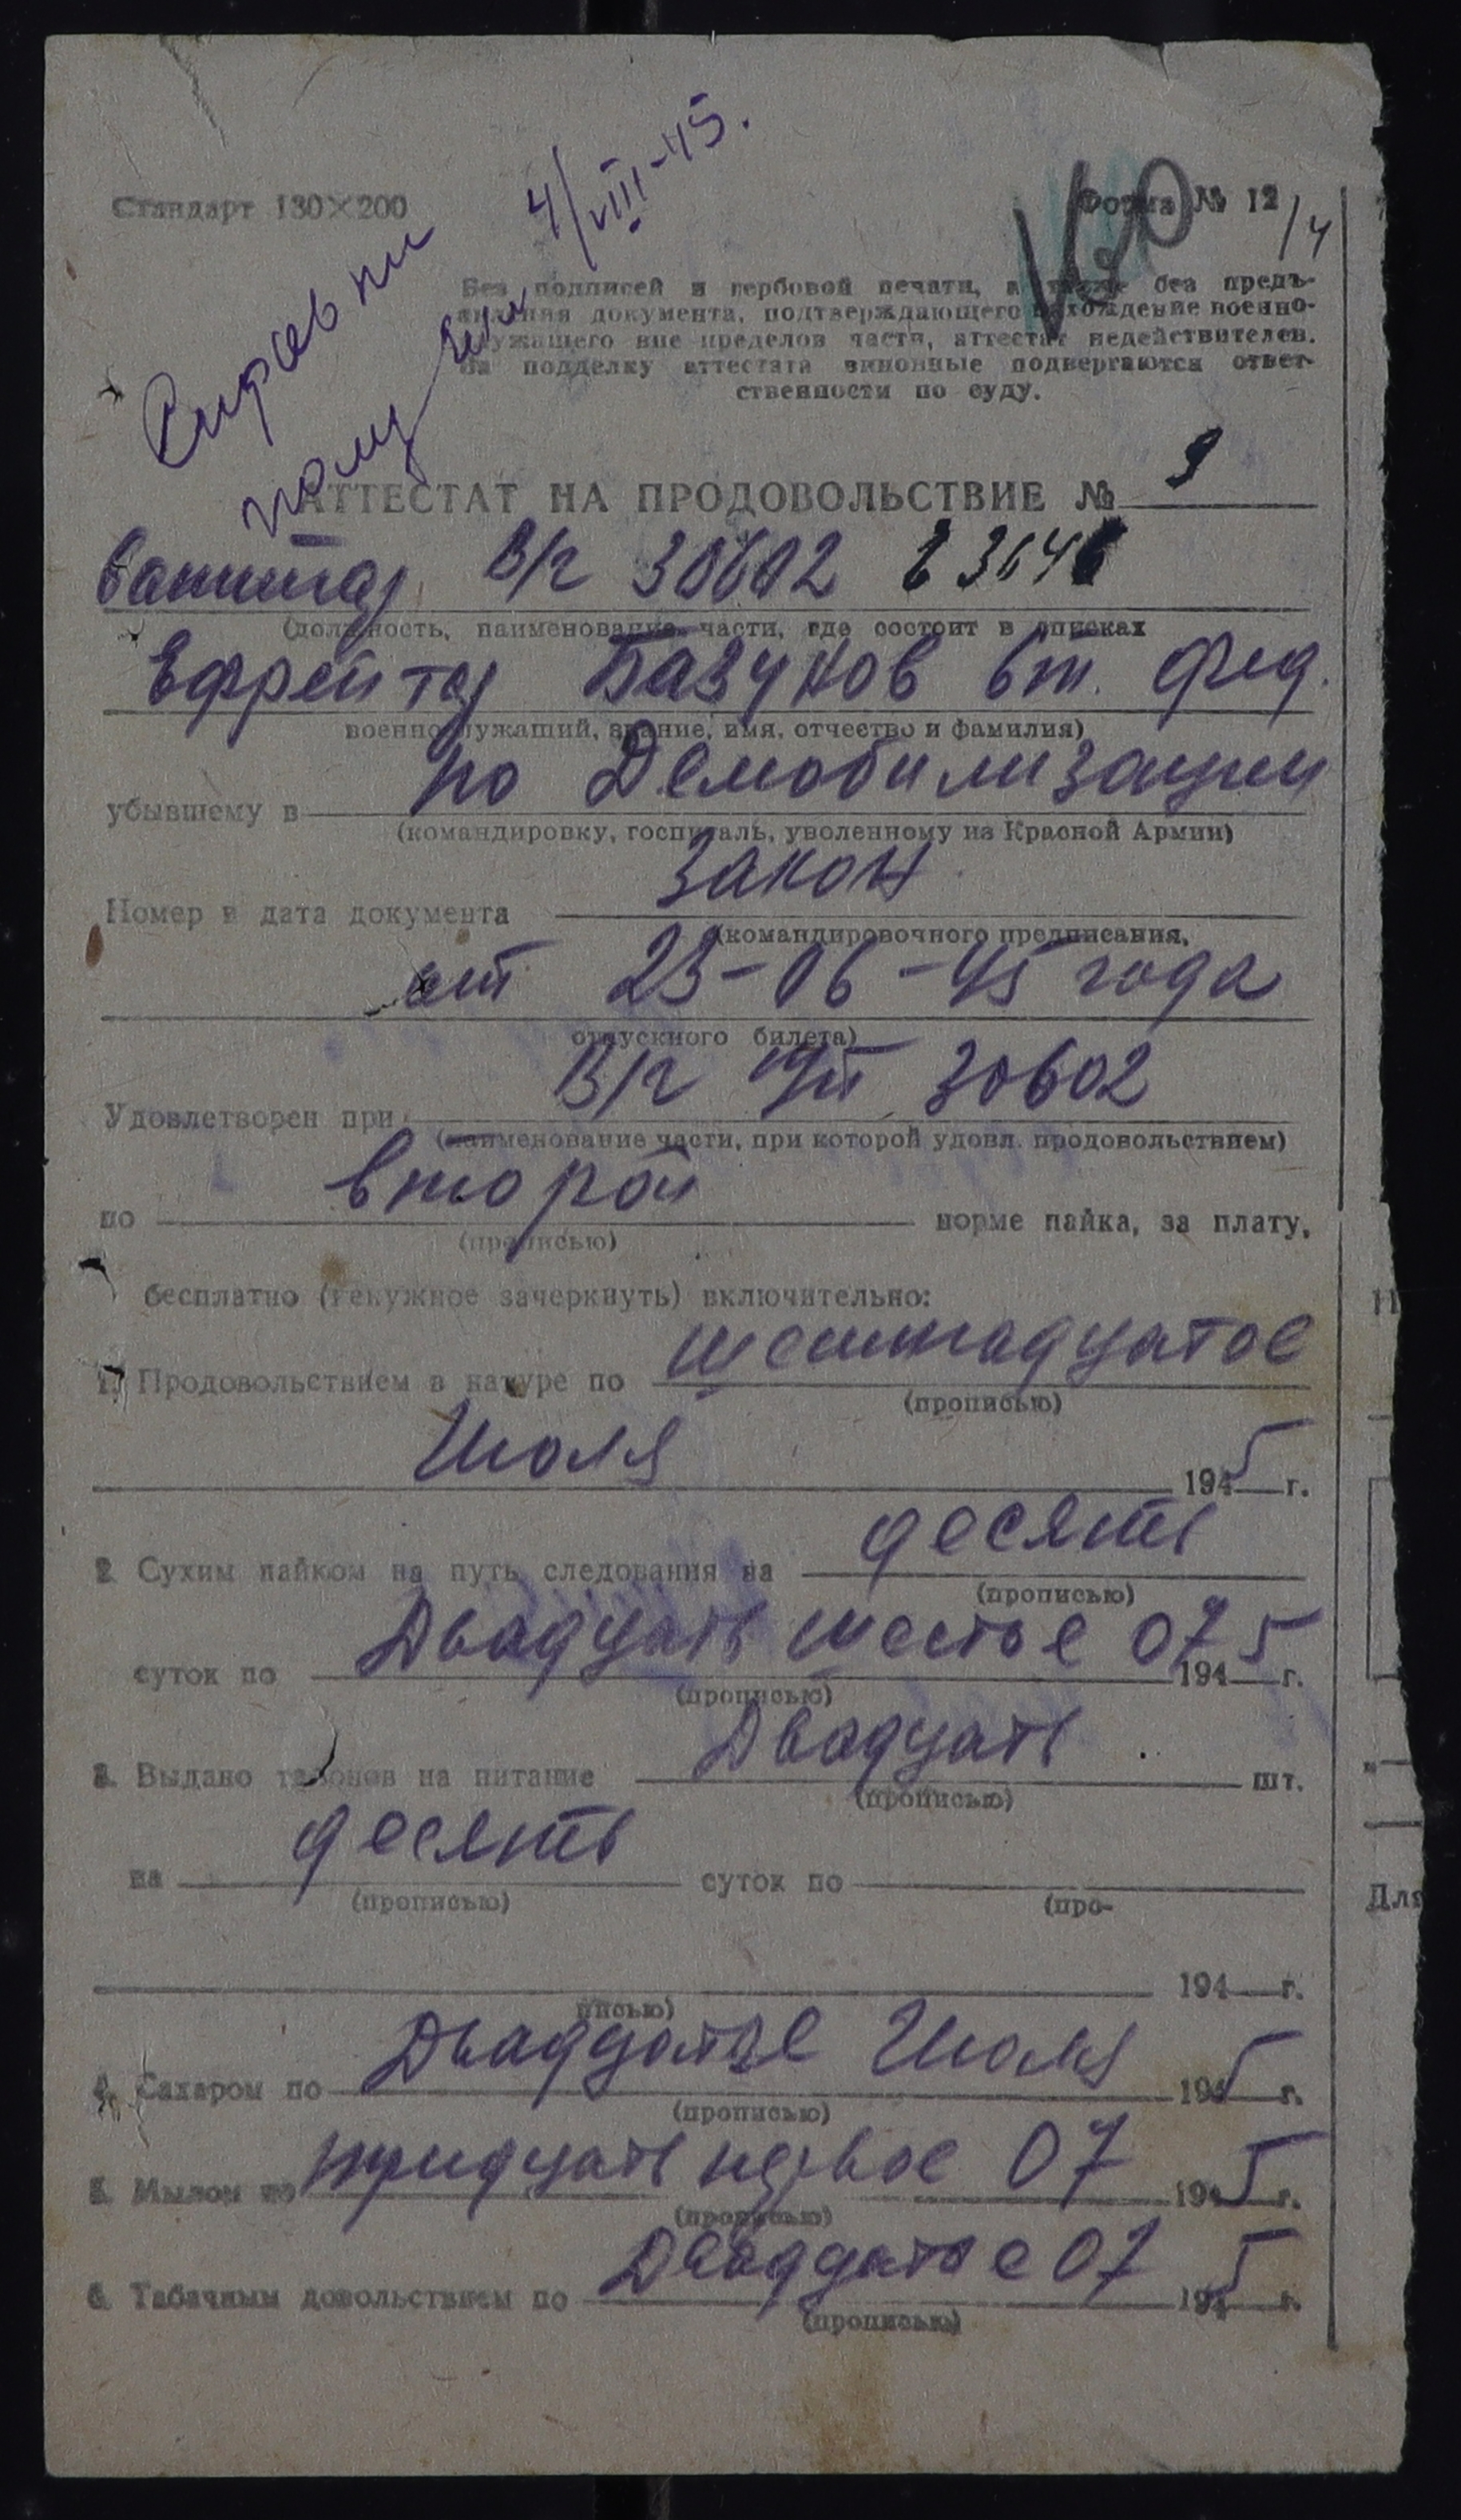 4/VIII-45.
Стандарт 130×200
Форма № 12
/4
Без подписей и гербовой печати, а также без предъ-
явления документа, подтверждающего нахождение военно-
служащего вне пределов части, аттестат недействителен.
За подделку аттестата виновные подвергаются ответ-
ственности по суду.
АТТЕСТАТ НА ПРОДОВОЛЬСТВИЕ № 9
Санитар В/г 30602
(должность, наименование части, где состоит в списках
Ефрейтор Базунов Фед.
военнослужащий, звание, имя, отчество и фамилия)
убывшему в по Демобилизации
(командировку, госпиталь, уволенному из Красной Армии)
Номер и дата документа Закон
(командировочного предписания,
от 23-06-45 года
отпускного билета)
Удовлетворен при В/г ПП 30602
(наименование части, при которой удовл. продовольствием)
по второй норме пайка, за плату,
(прописью)
бесплатно (ненужное зачеркнуть) включительно:
1. Продовольствием в натуре по шестнадцатое
(прописью)
Июля 1945 г.
2. Сухим пайком на путь следования на десять
(прописью)
суток по Двадцать шестое 07 1945 г.
(прописью)
3. Выдано талонов на питание Двадцать шт.
(прописью)
на десять суток по
(прописью) (про-
194 г.
писью)
4. Сахаром по Двадцатое Июля 1945 г.
(прописью)
5. Мылом по тридцать первое 07 1945 г.
(прописью)
6. Табачным довольствием по Двадцатое 07 1945 г.
(прописью)
Для